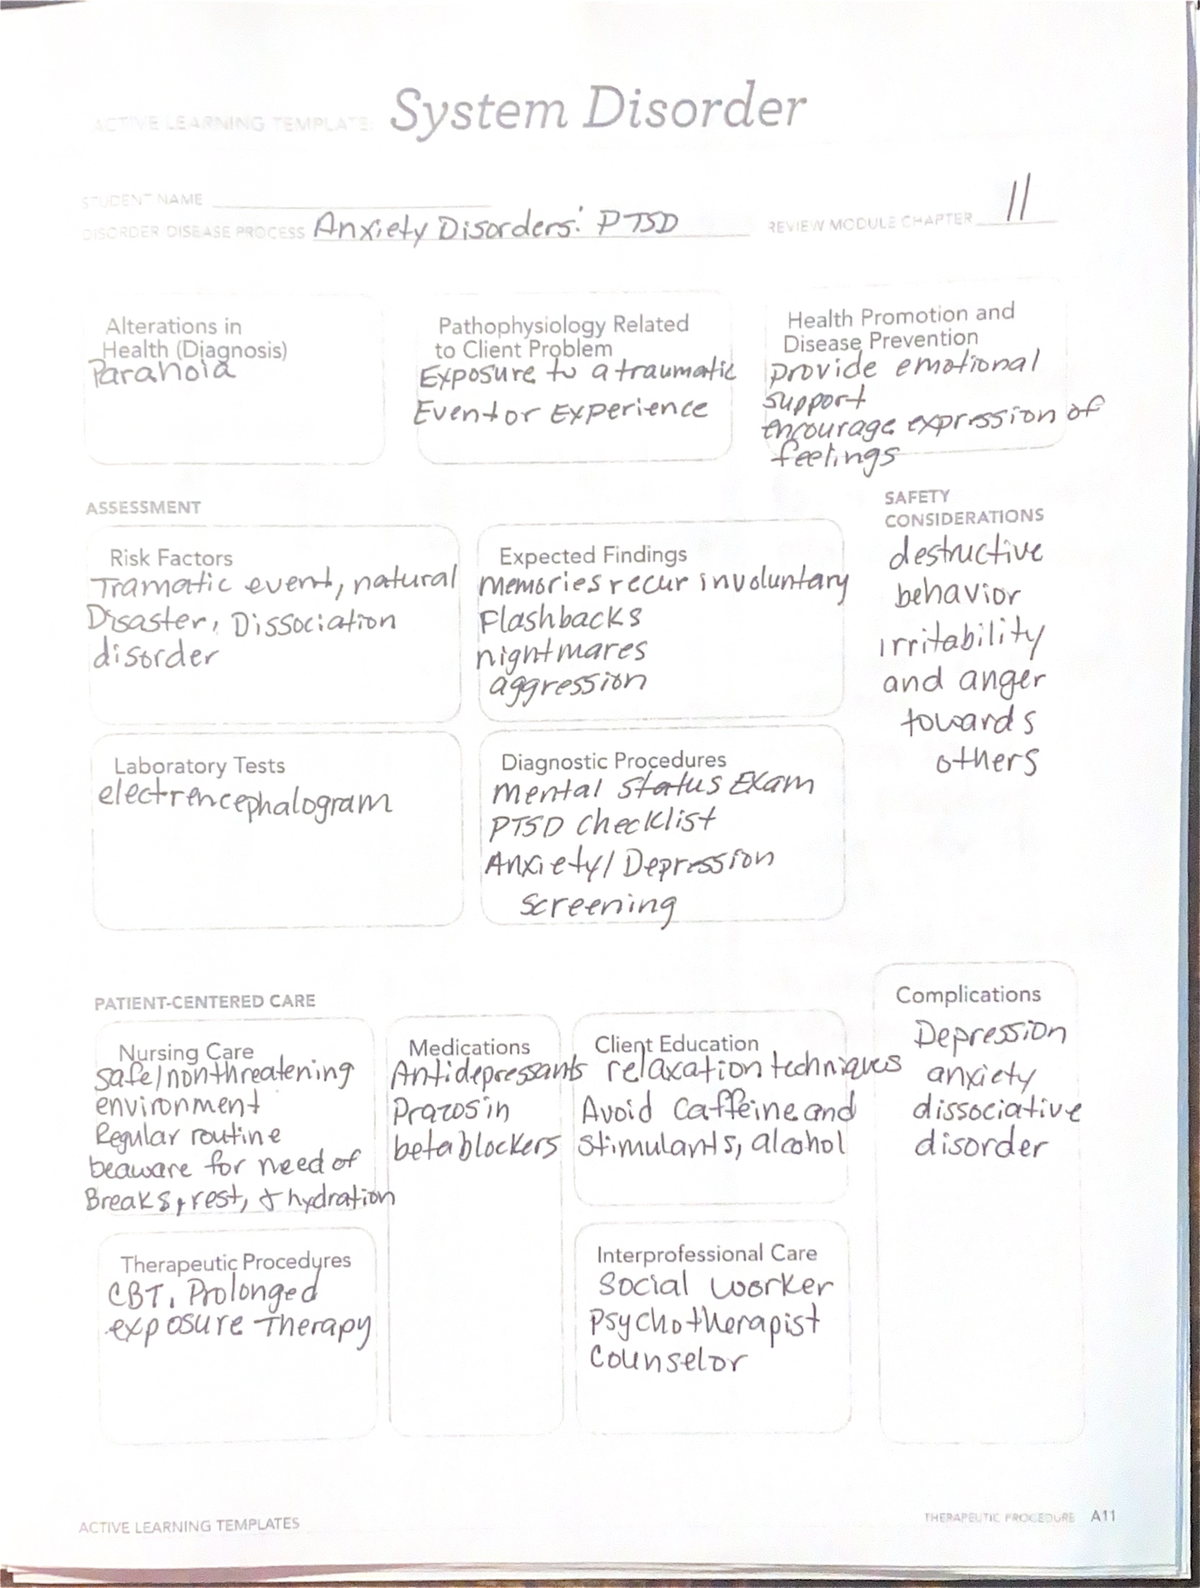 ACTIVE LEARNING TEMPLATE: System Disorder
STUDENT NAME
DISORDER/DISEASE PROCESS Anxiety Disorders: PTSD
REVIEW MODULE CHAPTER 11
Alterations in
Health (Diagnosis)
Paranoia
Pathophysiology Related
to Client Problem
Exposure to a traumatic
Event or Experience
Health Promotion and
Disease Prevention
provide emotional
support
encourage expression of
feelings
ASSESSMENT
SAFETY
CONSIDERATIONS
destructive
behavior
irritability
and anger
towards
others
Risk Factors
Tramatic event, natural
Disaster, Dissociation
disorder
Expected Findings
Memories recur involuntary
Flashbacks
nightmares
aggression
Laboratory Tests
electrencephalogram
Diagnostic Procedures
Mental Status Exam
PTSD Checklist
Anxiety/Depression
Screening
PATIENT-CENTERED CARE
Complications
Depression
anxiety
dissociative
disorder
Nursing Care
safe/nonthreatening
environment
Regular routine
beaware for need of
Breaks, rest, & hydration
Medications
Antidepressants
Prazosin
beta blockers
Client Education
relaxation techniques
Avoid Caffeine and
Stimulants, alcohol
Therapeutic Procedures
CBT, Prolonged
exposure Therapy
Interprofessional Care
Social worker
Psychotherapist
Counselor
ACTIVE LEARNING TEMPLATES
THERAPEUTIC PROCEDURE A11